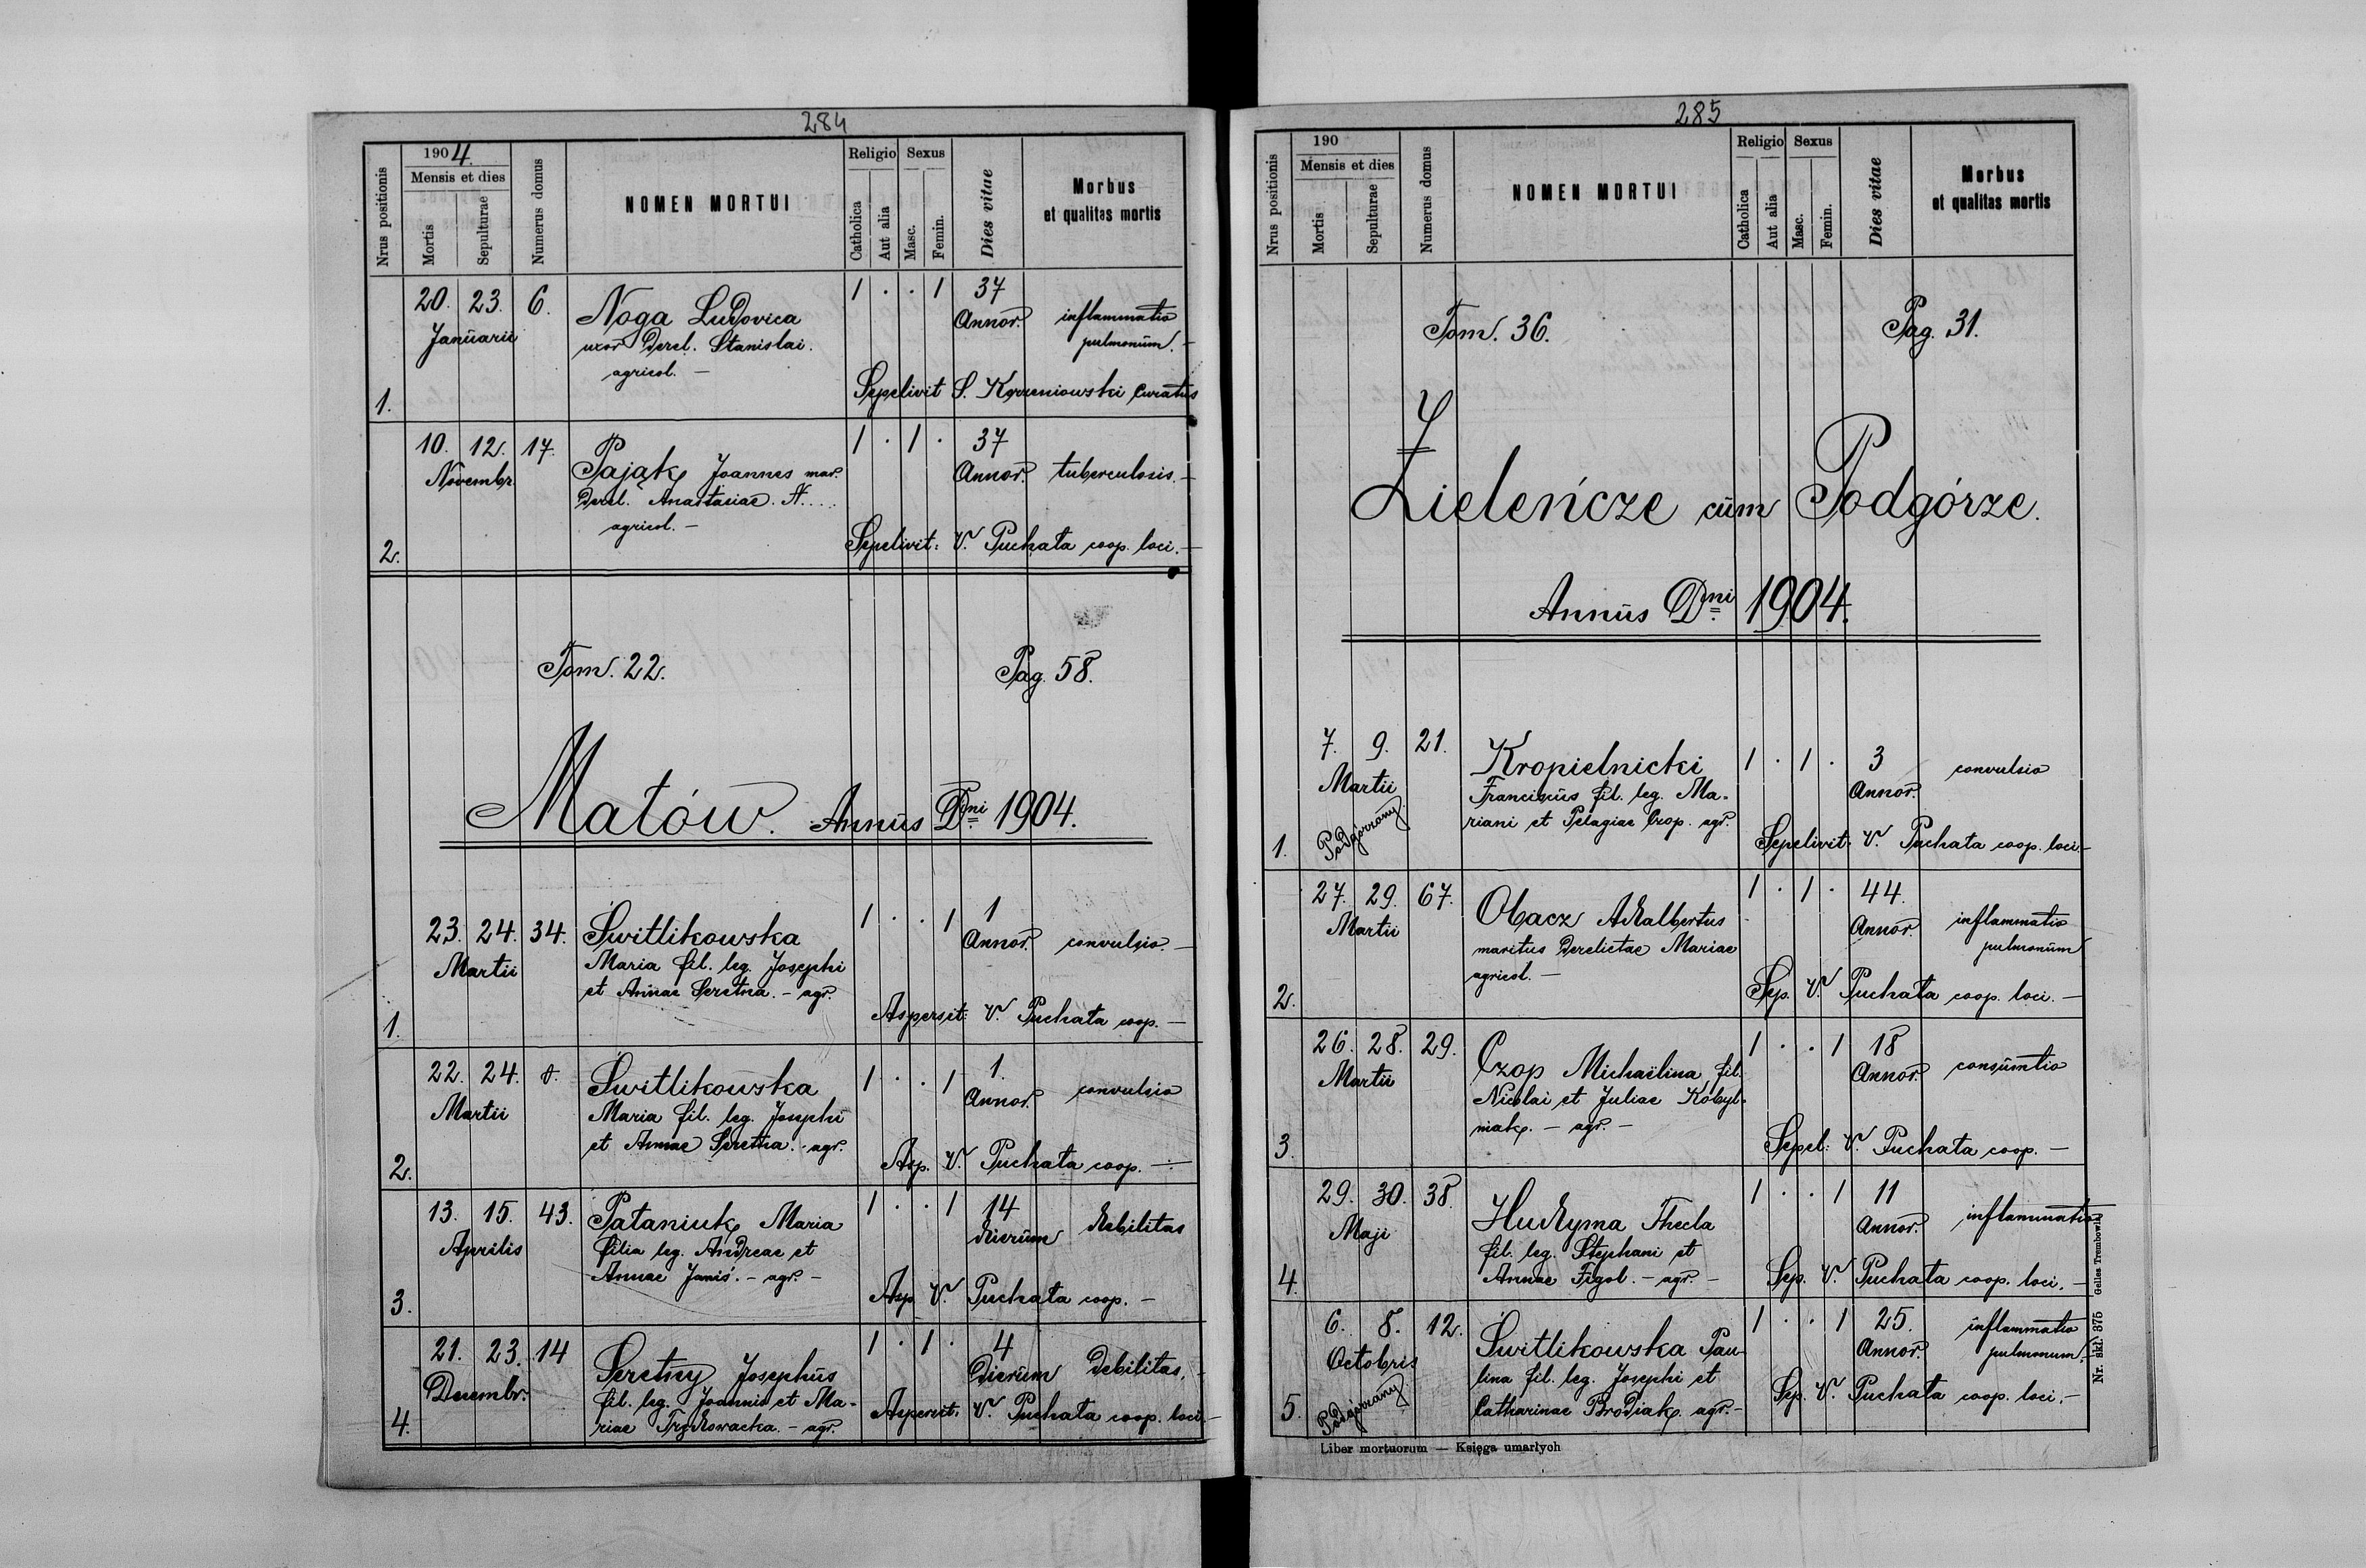 284
Nrus positionis
1904.
Mensis et dies
Mortis
Sepulturae
Numerus domus
NOMEN MORTUI
Religio
Catholica
Aut alia
Sexus
Masc.
Femin.
Dies vitae
Morbus
et qualitas mortis
20. 23. 6. Noga Ludovica 1 . . 1 37
Januarii uxor derel. Stanislai. Annor. inflammatio
agricol. — pulmonum. —
1. Sepelivit S. Korzeniowski Curatus
10. 12. 17. Pająk Joannes mar. 1 . 1 . 37
Novembr. derel. Anastasiae N.... Annor. tuberculosis. —
agricol. —
2. Sepelivit: V. Puchata coop. loci. —
Tom. 22. Pag. 58.
Małów. Annus Dni 1904.
23. 24. 34. Switlikowska 1 . . 1 1
Martii Maria fil. leg. Josephi Annor. convulsio. —
et Annae Seretna. — agr.
1. Aspersit: V. Puchata coop. —
22. 24. Switlikowska 1 . . 1 1.
Martii Maria fil. leg. Josephi Annor. convulsio
et Annae Seretna. agr.
2. Asp. V. Puchata coop. —
13. 15. 43. Pataniuk Maria 1 . . 1 14
Aprilis filia leg. Andreae et dierum debilitas
Annae Janiś. — agr. —
3. Asp. V. Puchata coop. —
21. 23. 14 Seretny Josephus 1 . 1 . 4
Decembr. fil. leg. Joannis et Ma- Dierum debilitas.
4. riae — agr. Aspersit: V. Puchata coop. loci. —
285
Nrus positionis
190
Mensis et dies
Mortis
Sepulturae
Numerus domus
NOMEN MORTUI
Religio
Catholica
Aut alia
Sexus
Masc.
Femin.
Dies vitae
Morbus
et qualitas mortis
Tom. 36. Pag. 31.
Zieleńcze cum Podgórze.
Annus Dni 1904.
7. 9. 21. Kropielnicki 1 . 1 . 3 convulsio
Martii Franciscus fil. leg. Ma- Annor.
Podgórzany riani et Pelagiae Czop. agr.
1. Sepelivit: V. Puchata coop. loci. —
27. 29. 67. Obacz Adalbertus 1 . 1 . 44.
Martii maritus derelictae Mariae Annor. inflammatio
agricol. — pulmonum
2. Sep. V. Puchata coop. loci. —
26. 28. 29. Czop Michaelina fil. 1 . . 1 18
Martii Nicolai et Juliae Kobyl- Annor. consumtio
niak. — agr. —
3. Sepel: V. Puchata coop. —
29. 30. 38. Hudyma Thecla 1 . . 1 11
Maji fil. leg. Stephani et Annor. inflammatio
Annae Figol. — agr. —
4. Sep. V. Puchata coop. loci. —
6. 8. 12. Switlikowska Pau- 1 . . 1 25. inflammatio
Octobris lina fil. leg. Josephi et Annor. pulmonum.
Podgórzany Catharinae Brodiak. agr. —
5. Sep. V. Puchata coop. loci. —
Liber mortuorum — Księga umarłych
Nr. skł. 375 Gelles Trembowla